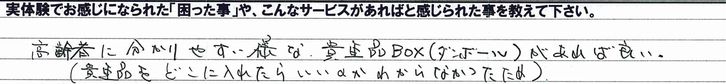 実体験でお感じになられた「困った事」や、こんなサービスがあればと感じられた事を教えて下さい。
高齢者に分かりやすい様な、貴重品BOX(ダンボール)があれば良い。
(貴重品をどこに入れたらいいのかわからなかったため)